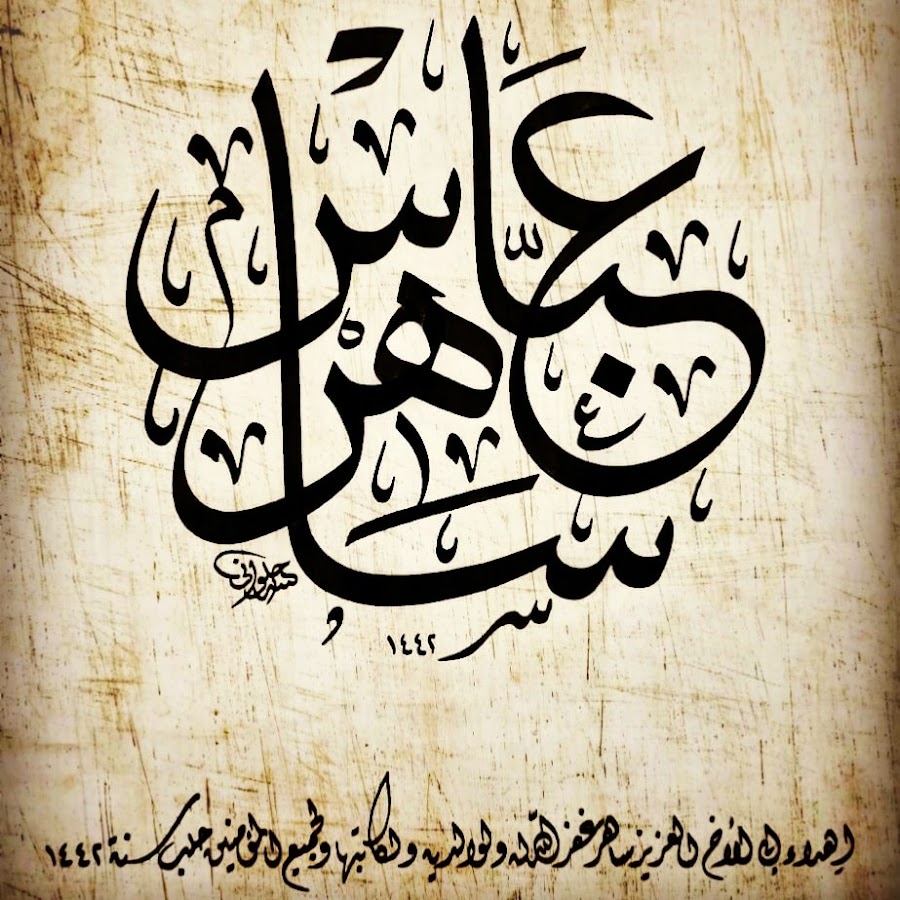 ساهرْ
عَبَّاسْ
حلواني
١٤٤٢
إهداء إلى الأخ العزيز ساهر غفر الله له ولوالديه ولكاتبها ولجميع المؤمنين حلب سنة ١٤٤٢